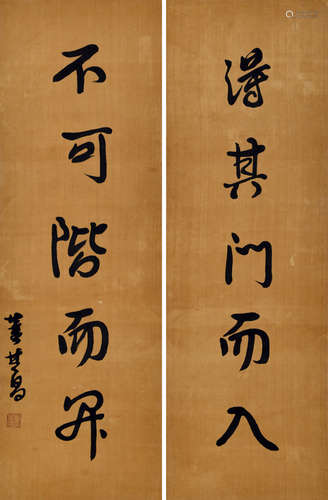 得其门而入
不可階而升
董其昌